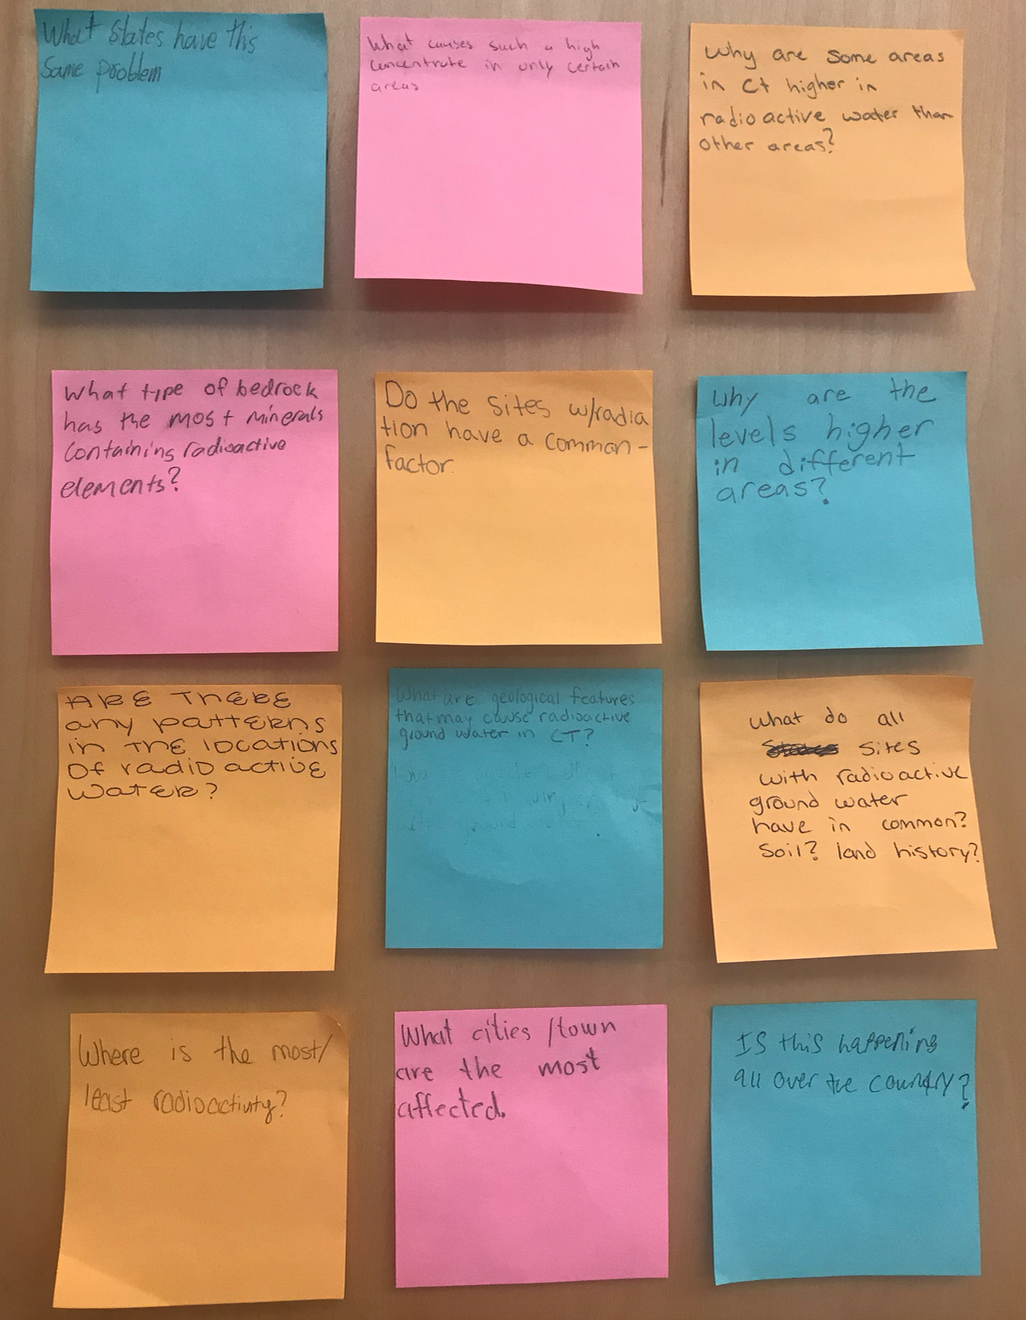 What States have this
Same problem
What causes such a high
concentrate in only certain
areas
Why are some areas
in Ct higher in
radioactive water than
other areas?
What type of bedrock
has the most minerals
containing radioactive
elements?
Do the sites w/radia
tion have a common-
factor.
Why are the
levels higher
in different
areas?
ARE THERE
any patterns
in THE locations
Of radioactive
WATER?
What are geological features
that may cause radioactive
ground water in CT?
What do all
sites
with radioactive
ground water
have in common?
Soil? land history?
Where is the most/
least radioactivity?
What cities /town
are the most
affected.
Is this happening
all over the country?